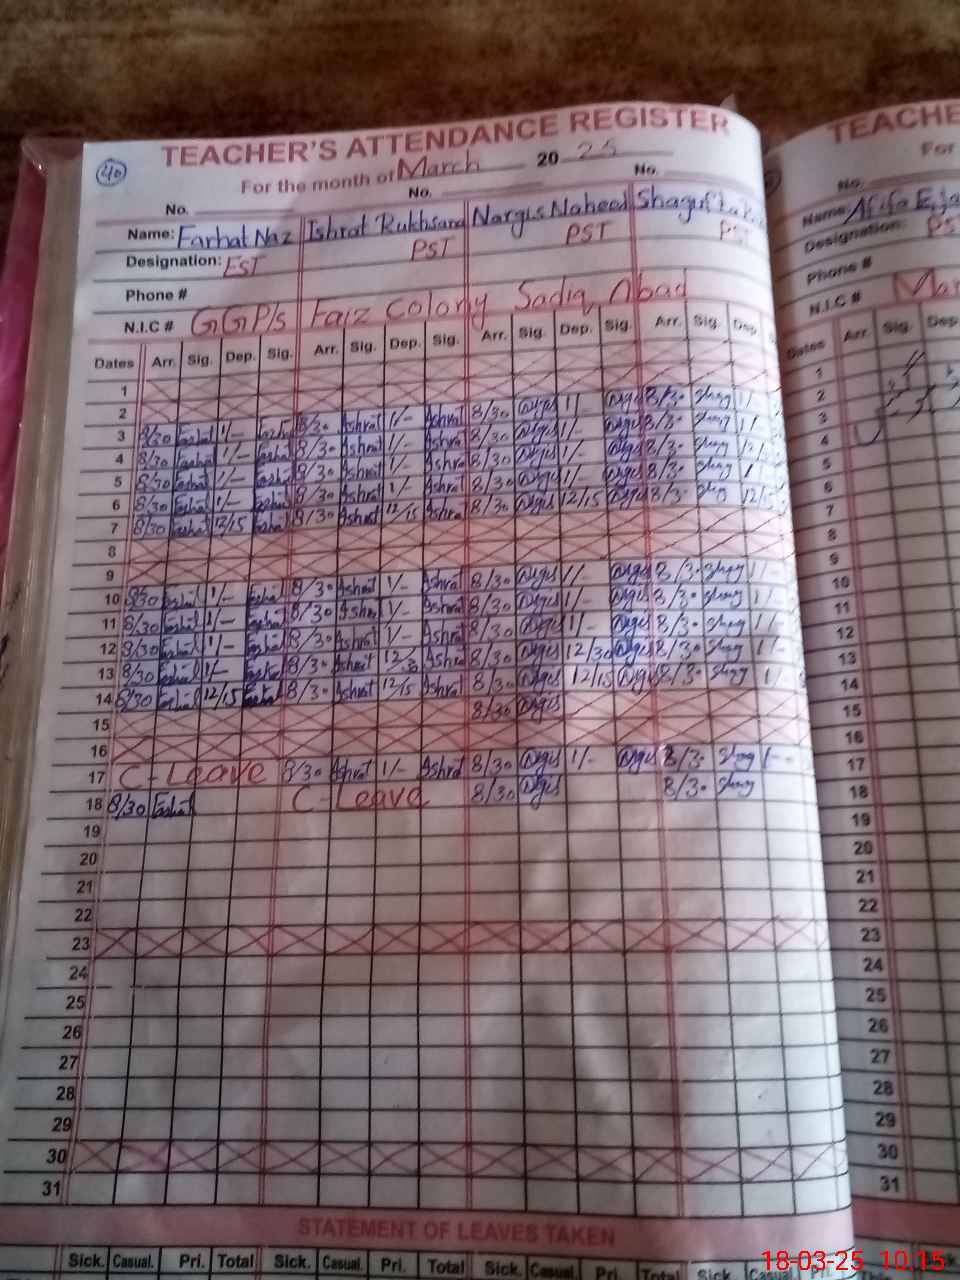 TEACHER'S ATTENDANCE REGISTER
40
For the month of March 2025
No. No. No.
Name: Farhat Naz Ishrat Rukhsana Nargis Naheed
Designation: EST PST PST PST
Phone #
N.I.C # GGP/s Faiz Colony Sadiq Abad
Dates Arr. Sig. Dep. Sig. Arr. Sig. Dep. Sig. Arr. Sig. Dep. Sig. Arr. Sig. Dep.
1
2
3 8/30 Farhat 1/- Farhat 8/30 Ishrat 1/- Ishrat 8/30 Nargis 1/- Nargis 8/30 Shag 1/-
4 8/30 Farhat 1/- Farhat 8/30 Ishrat 1/- Ishrat 8/30 Nargis 1/- Nargis 8/30 Shag 1/-
5 8/30 Farhat 1/- Farhat 8/30 Ishrat 1/- Ishrat 8/30 Nargis 1/- Nargis 8/30 Shag
6 8/30 Farhat 1/- Farhat 8/30 Ishrat 1/- Ishrat 8/30 Nargis 1/- Nargis 8/30 Shag
7 8/30 Farhat 12/15 Farhat 8/30 Ishrat 12/15 Ishrat 8/30 Nargis 12/15 Nargis 8/30 Shag 12/15
8
9
10 8/30 Farhat 1/- Farhat 8/30 Ishrat 1/- Ishrat 8/30 Nargis 1/- Nargis 8/30 Shag 1/-
11 8/30 Farhat 1/- Farhat 8/30 Ishrat 1/- Ishrat 8/30 Nargis 1/- Nargis 8/30 Shag 1/-
12 8/30 Farhat 1/- Farhat 8/30 Ishrat 1/- Ishrat 8/30 Nargis 1/- Nargis 8/30 Shag 1/-
13 8/30 Farhat 1/- Farhat 8/30 Ishrat 12/30 Ishrat 8/30 Nargis 12/30 Nargis 8/30 Shag 1/-
14 8/30 Farhat 12/15 Farhat 8/30 Ishrat 12/15 Ishrat 8/30 Nargis 12/15 Nargis 8/30 Shag 1/-
15 8/30 Nargis
16
17 C-Leave 8/30 Ishrat 1/- Ishrat 8/30 Nargis 1/- Nargis 8/30 Shag 1/-
18 8/30 Farhat C-Leave 8/30 Nargis 8/30 Shag
19
20
21
22
23
24
25
26
27
28
29
30
31
STATEMENT OF LEAVES TAKEN
Sick. Casual. Pri. Total Sick. Casual. Pri. Total Sick. Casual. Pri. Total Sick. Casual
TEACHE
For
No.
Name: Afifa Eja
Designation: PS
Phone #
N.I.C # Mar
Dates Arr. Sig. Dep
1
2
3
4
5
6
7
8
9
10
11
12
13
14
15
16
17
18
19
20
21
22
23
24
25
26
27
28
29
30
31
18-03-25 10:15